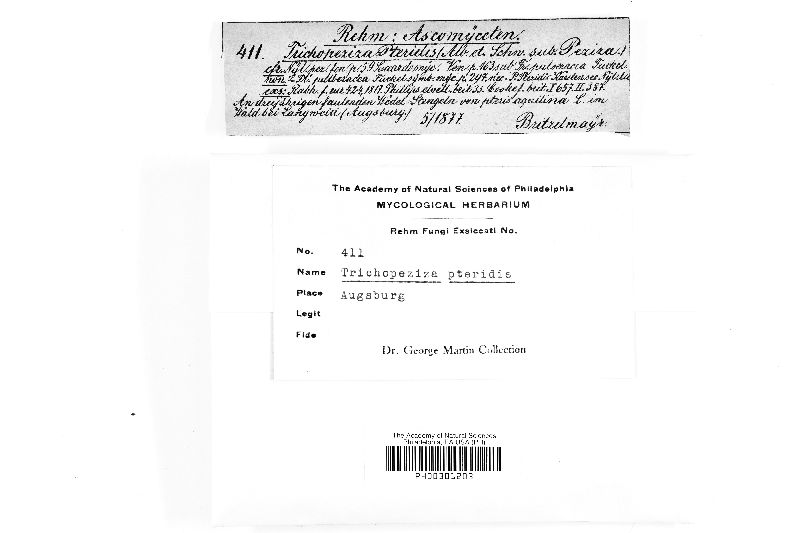 Rehm: Ascomyceten.
411. Trichopeziza Pteridis (Alb. et Schw. sub Peziza.)
cfr. Nyl. pez. fen. p. 59. p. 163 sub
non Fuckel symb. myc. p. 297.
exs: Rabh. f. eur. Phillips elvell. brit. 35. Cooke f. brit. I 657. II. 387.
An dreijährigen faulenden Wedel-Stengeln von pteris aquilina L. im
Wald bei (Augsburg) 5/1877. Britzelmayr.
The Academy of Natural Sciences of Philadelphia
MYCOLOGICAL HERBARIUM
Rehm Fungi Exsiccati No.
No. 411
Name Trichopeziza pteridis
Place Augsburg
Legit
Fide
Dr. George Martin Collection
The Academy of Natural Sciences
Philadelphia, PA USA (PH)
PH00301203